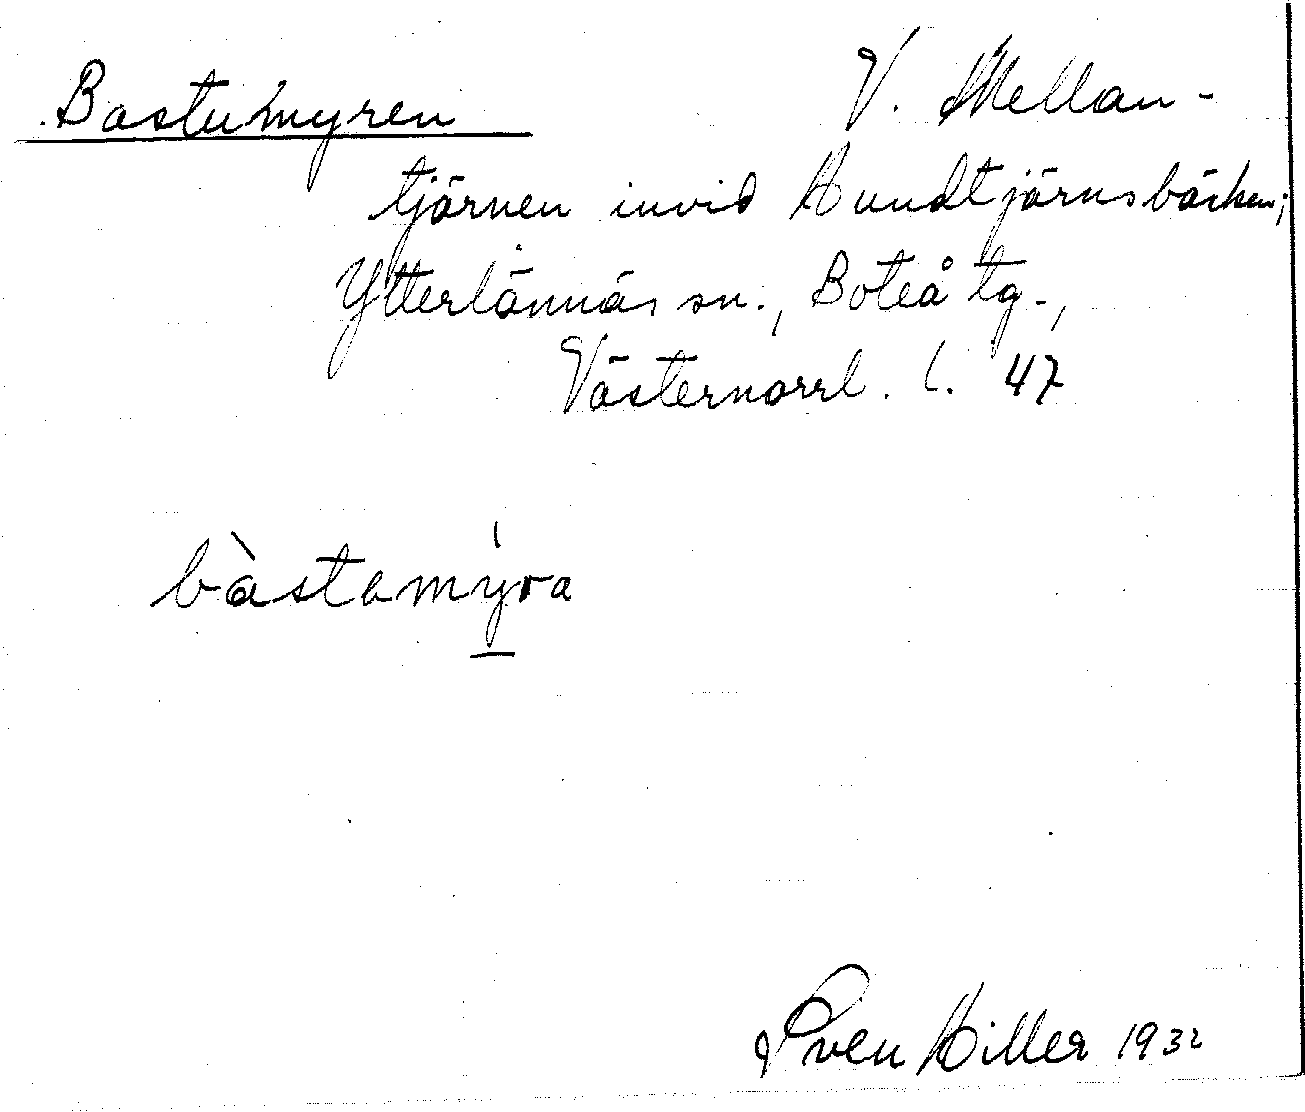 Bastumyren V. Mellan-
tjärnen invid Hundtjärnsbäcken;
Ytterlännäs sn., Boteå tg.,
Västernorrl. l. 47
bàstamýra
Sven Hiller 1932